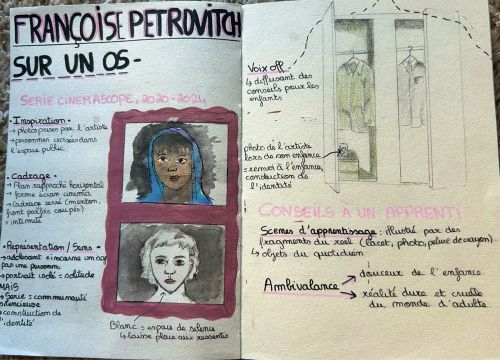 FRANÇOISE PETROVITCH
SUR UN OS -
SERIE CINEMASCOPE, 2020-2024
• Inspiration •
→ photos prises par l'artiste
→ personnes croisées dans
l'espace public
• Cadrage •
→ Plan rapproché horizontal
forme écran cinéma
→ Cadrage serré (menton,
front parfois coupés)
= intimité
• Représentation / Sens •
→ adolescent
pas une personne
→ portrait isolé = solitude
MAIS
→ Série = communauté
silencieuse
→ construction de
l'identité
Blanc = espace de silence
↳ laisse place aux ressentis
Voix off
↳ diffusant des
conseils pour les
enfants
photo de l'artiste
lors de son enfance
→ renvoi à l'enfance,
construction de
l'identité
CONSEILS À UN APPRENTI
Scènes d'apprentissage : illustré par des
fragments du réel (lacet, photo, pelure de crayon)
↳ objets du quotidien
Ambivalance
→ douceur de l'enfance
→ réalité dure et cruelle
du monde d'adulte